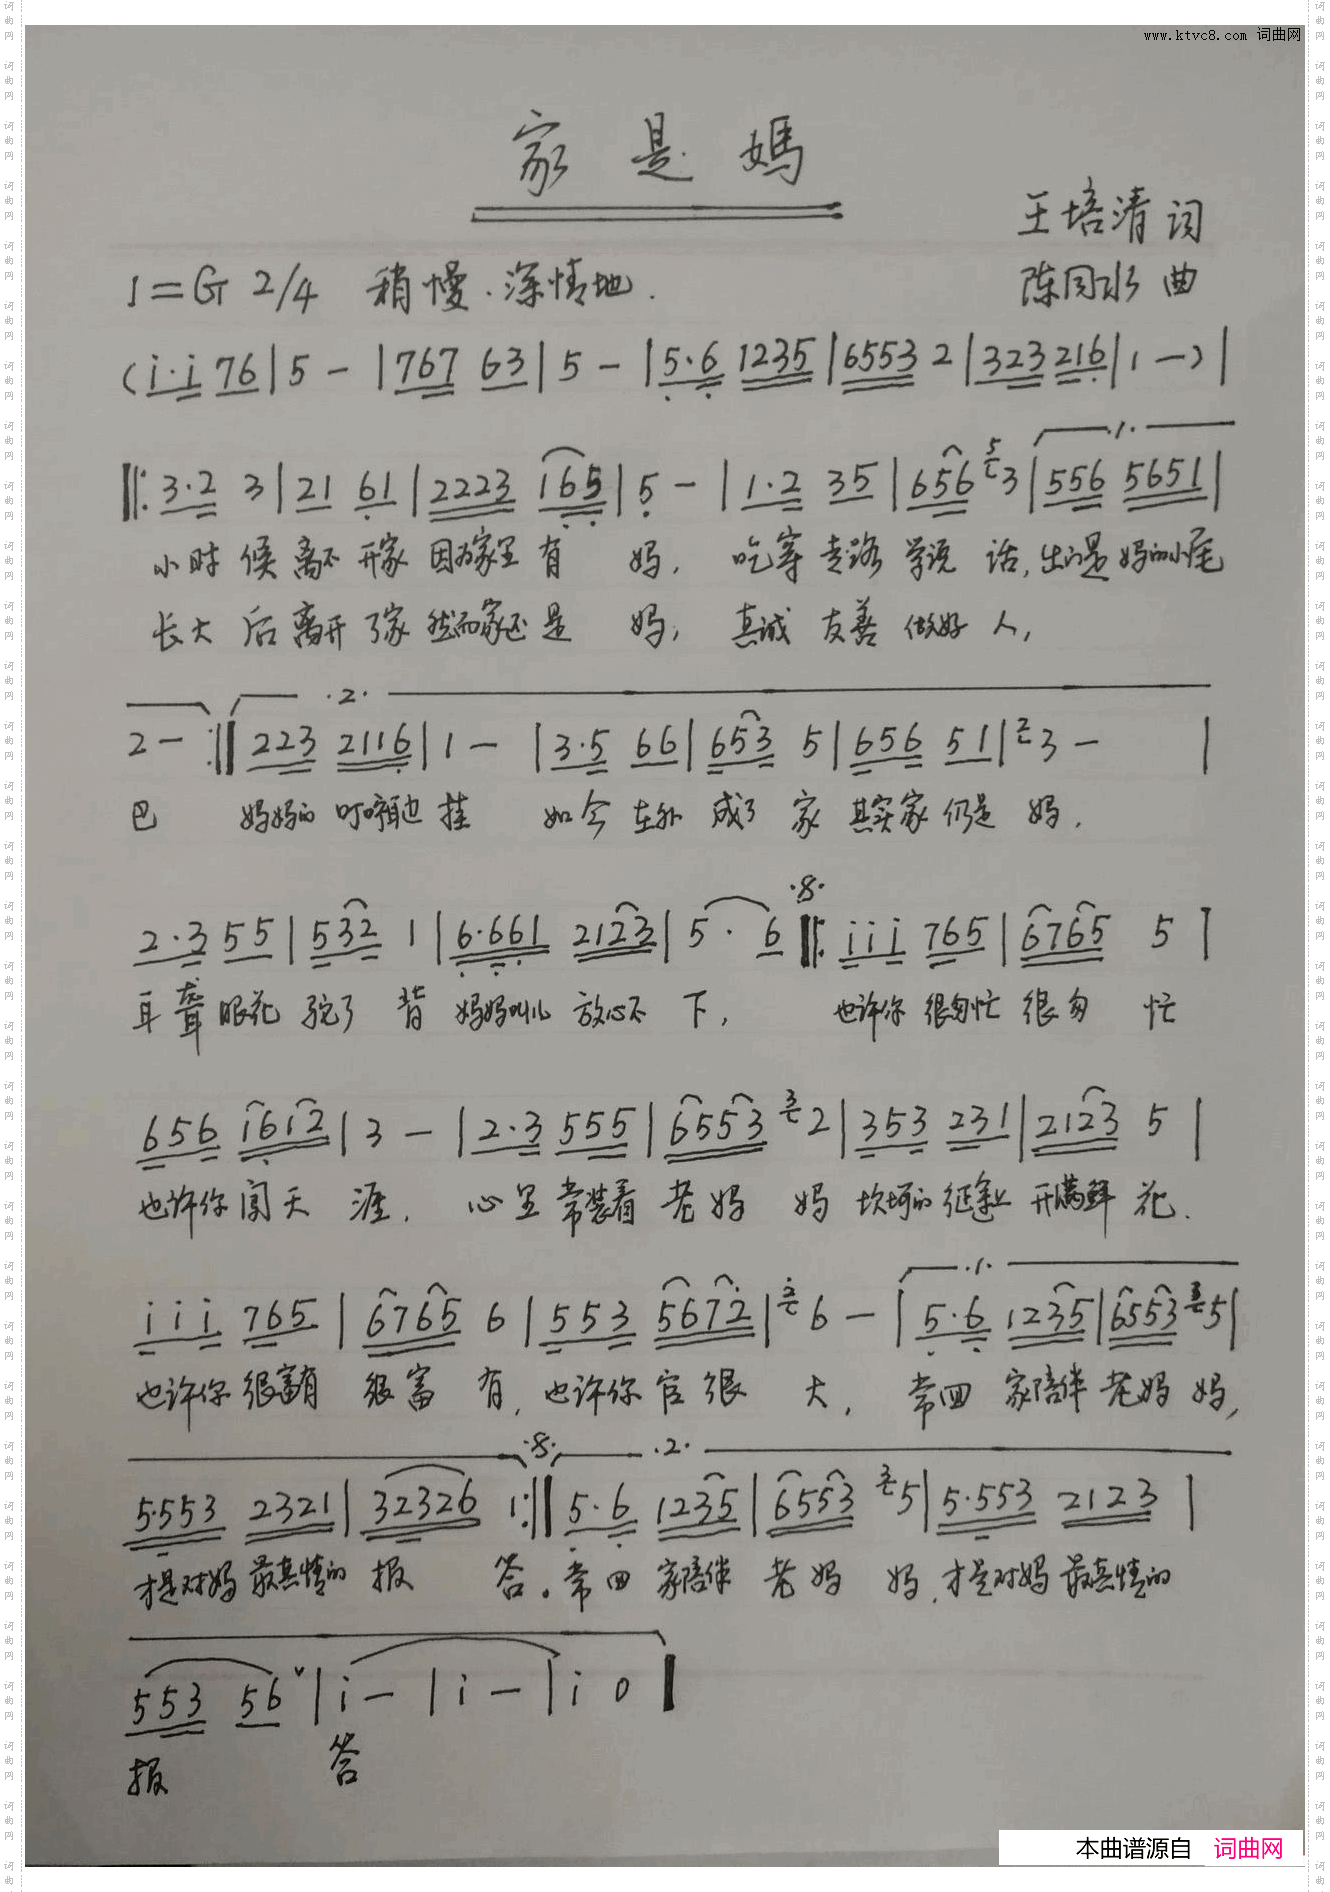 www.ktvc8.com 词曲网
家是媽
王培清 词
1=G 2/4 稍慢.深情地.
陈同水 曲
(i·i 76|5 -|767 63|5 -|5·6 1235|6553 2|323 216|1 -)|
·1·
‖:3·2 3|21 61|2223 165|5 -|1·2 35|656 5 3|556 5651|
小时 候 离不 开家 因为家里 有 妈, 吃穿 走路 学说 话, 出门是 妈的小尾
长大 后 离开 了家 然而家还 是 妈, 真诚 友善 做好 人,
·2·
2 - :‖223 2116|1 -|3·5 66|653 5|656 51|2 3 -|
巴 妈妈的 叮咛耳边 挂 如今 在外 成了 家 其实家 仍是 妈.
·8·
2·3 55|532 1|6·661 2123|5· 6‖:iii 765|6765 5|
耳聋 眼花 驼了 背 妈妈叫儿 放心不 下, 也许你 很匆忙 很匆 忙
656 1612|3 -|2·3 555|6553 3 2|353 231|2123 5|
也许你 闯天 涯, 心里 常装着 老妈 妈 坎坷的 征途上 开满鲜 花.
·1·
iii 765|6765 6|553 5672|2 6 -|5·6 1235|6553 3 5|
也许你 很富有 很富 有, 也许你 官很 大, 常回 家陪伴 老妈 妈,
·8· ·2·
5·553 2321|32326 1:‖5·6 1235|6553 3 5|5·553 2123|
才是对妈 最真情的 报 答。常回 家陪伴 老妈 妈,才是对妈 最真情的
553 56 ˅|i -|i -|i 0‖
报 答
本曲谱源自 词曲网